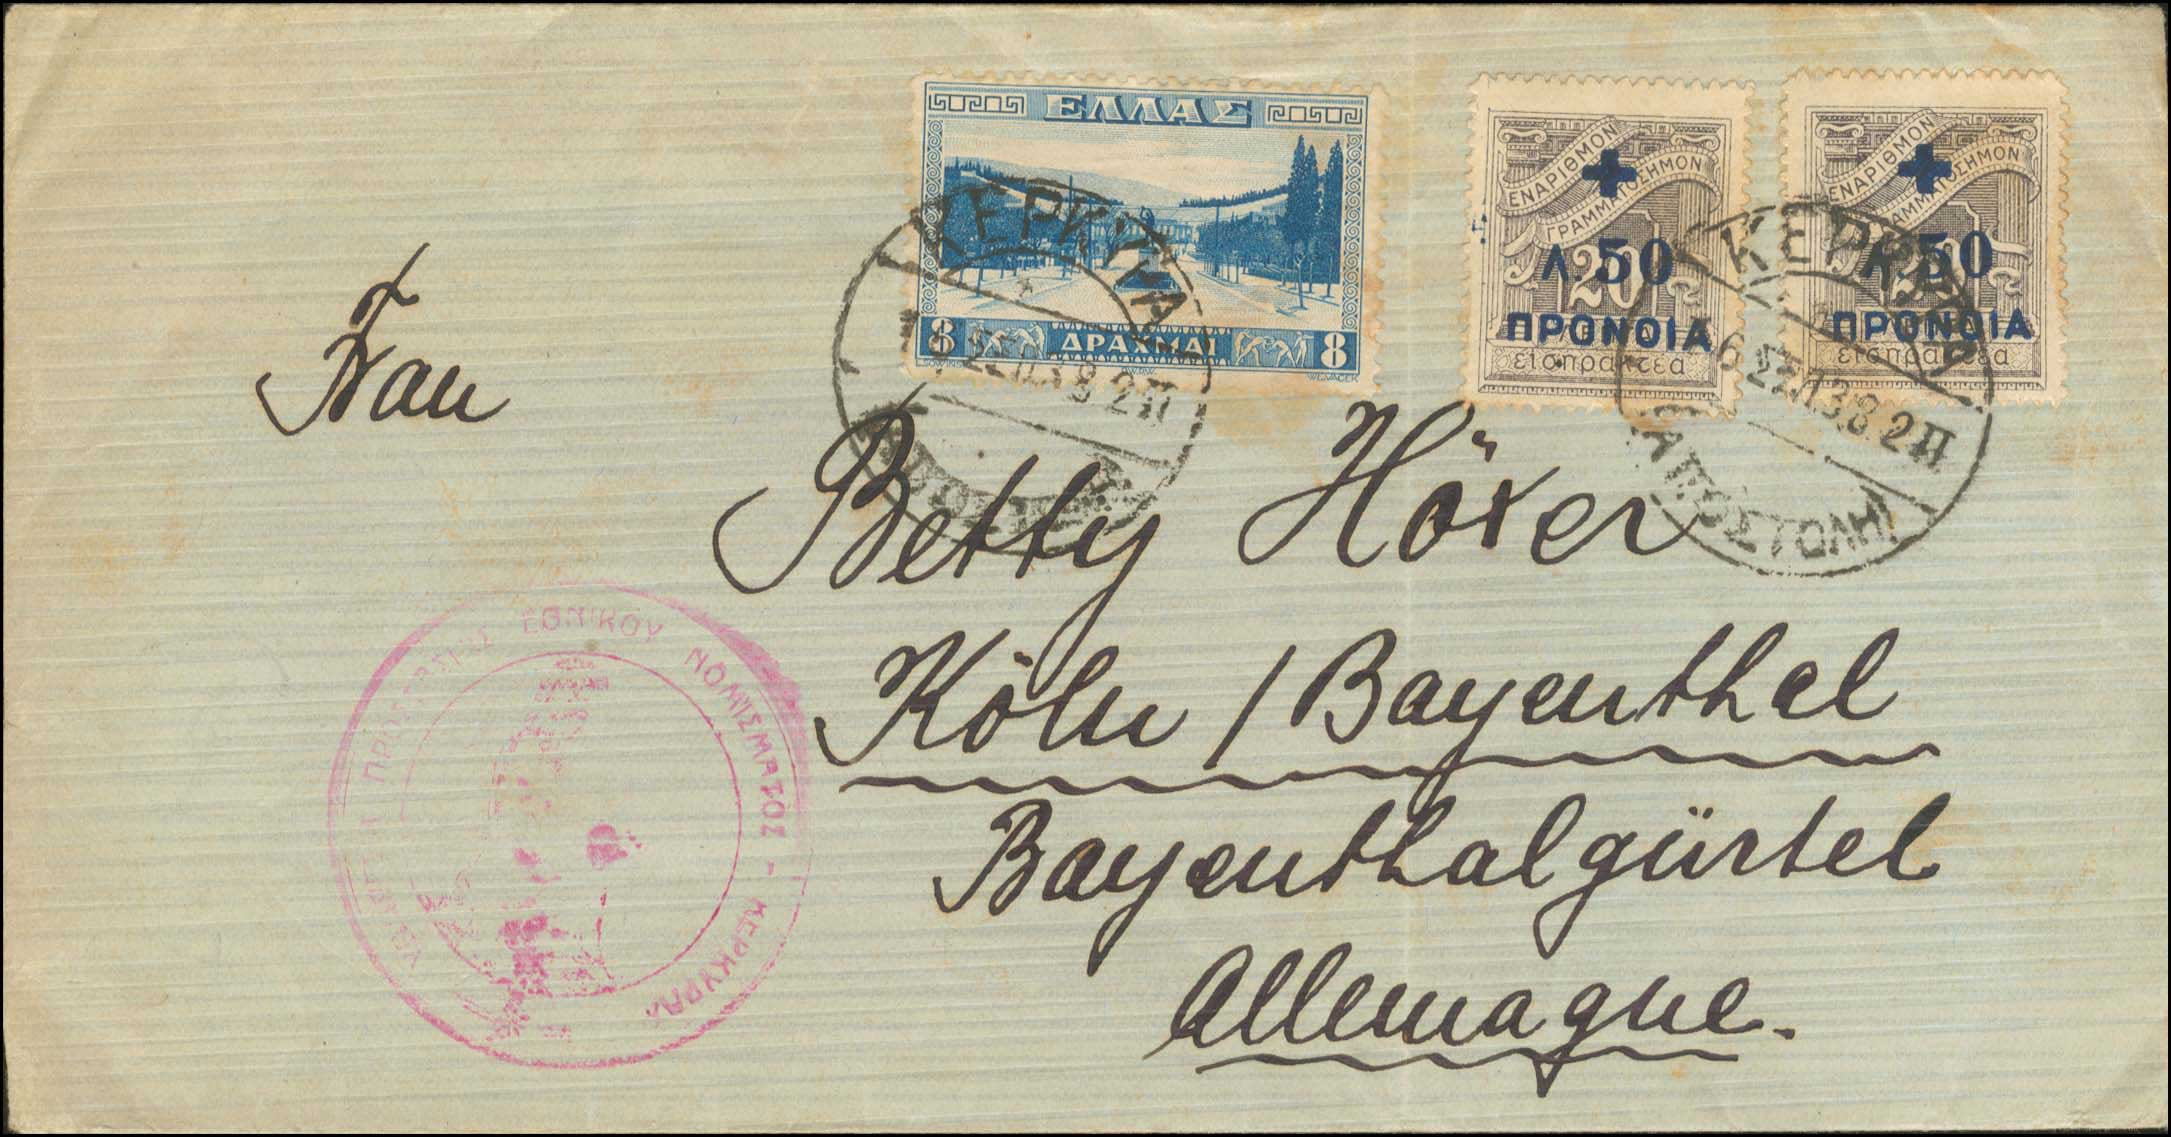 ΕΛΛΑΣ
8 ΔΡΑΧΜΑΙ 8
ΕΝΑΡΙΘΜΟΝ
ΓΡΑΜΜΑΤΟΣΗΜΟΝ
20
Λ.50
ΠΡΟΝΟΙΑ
εισπρακτέα
ΕΝΑΡΙΘΜΟΝ
ΓΡΑΜΜΑΤΟΣΗΜΟΝ
20
Λ.50
ΠΡΟΝΟΙΑ
εισπρακτέα
ΚΕΡΚΥΡΑ
ΣΕΠ 38 2 Π
ΚΕΡΚΥΡΑ
6 ΣΕΠ 38. 2 Π
ΑΠΟΣΤΟΛΗ
Frau
Betty Höxer
Köln / Bayenthal
Bayenthalgürtel
Allemagne.
ΕΘΝΙΚΟΥ ΝΟΜΙΣΜΑΤΟΣ - ΚΕΡΚΥΡΑ